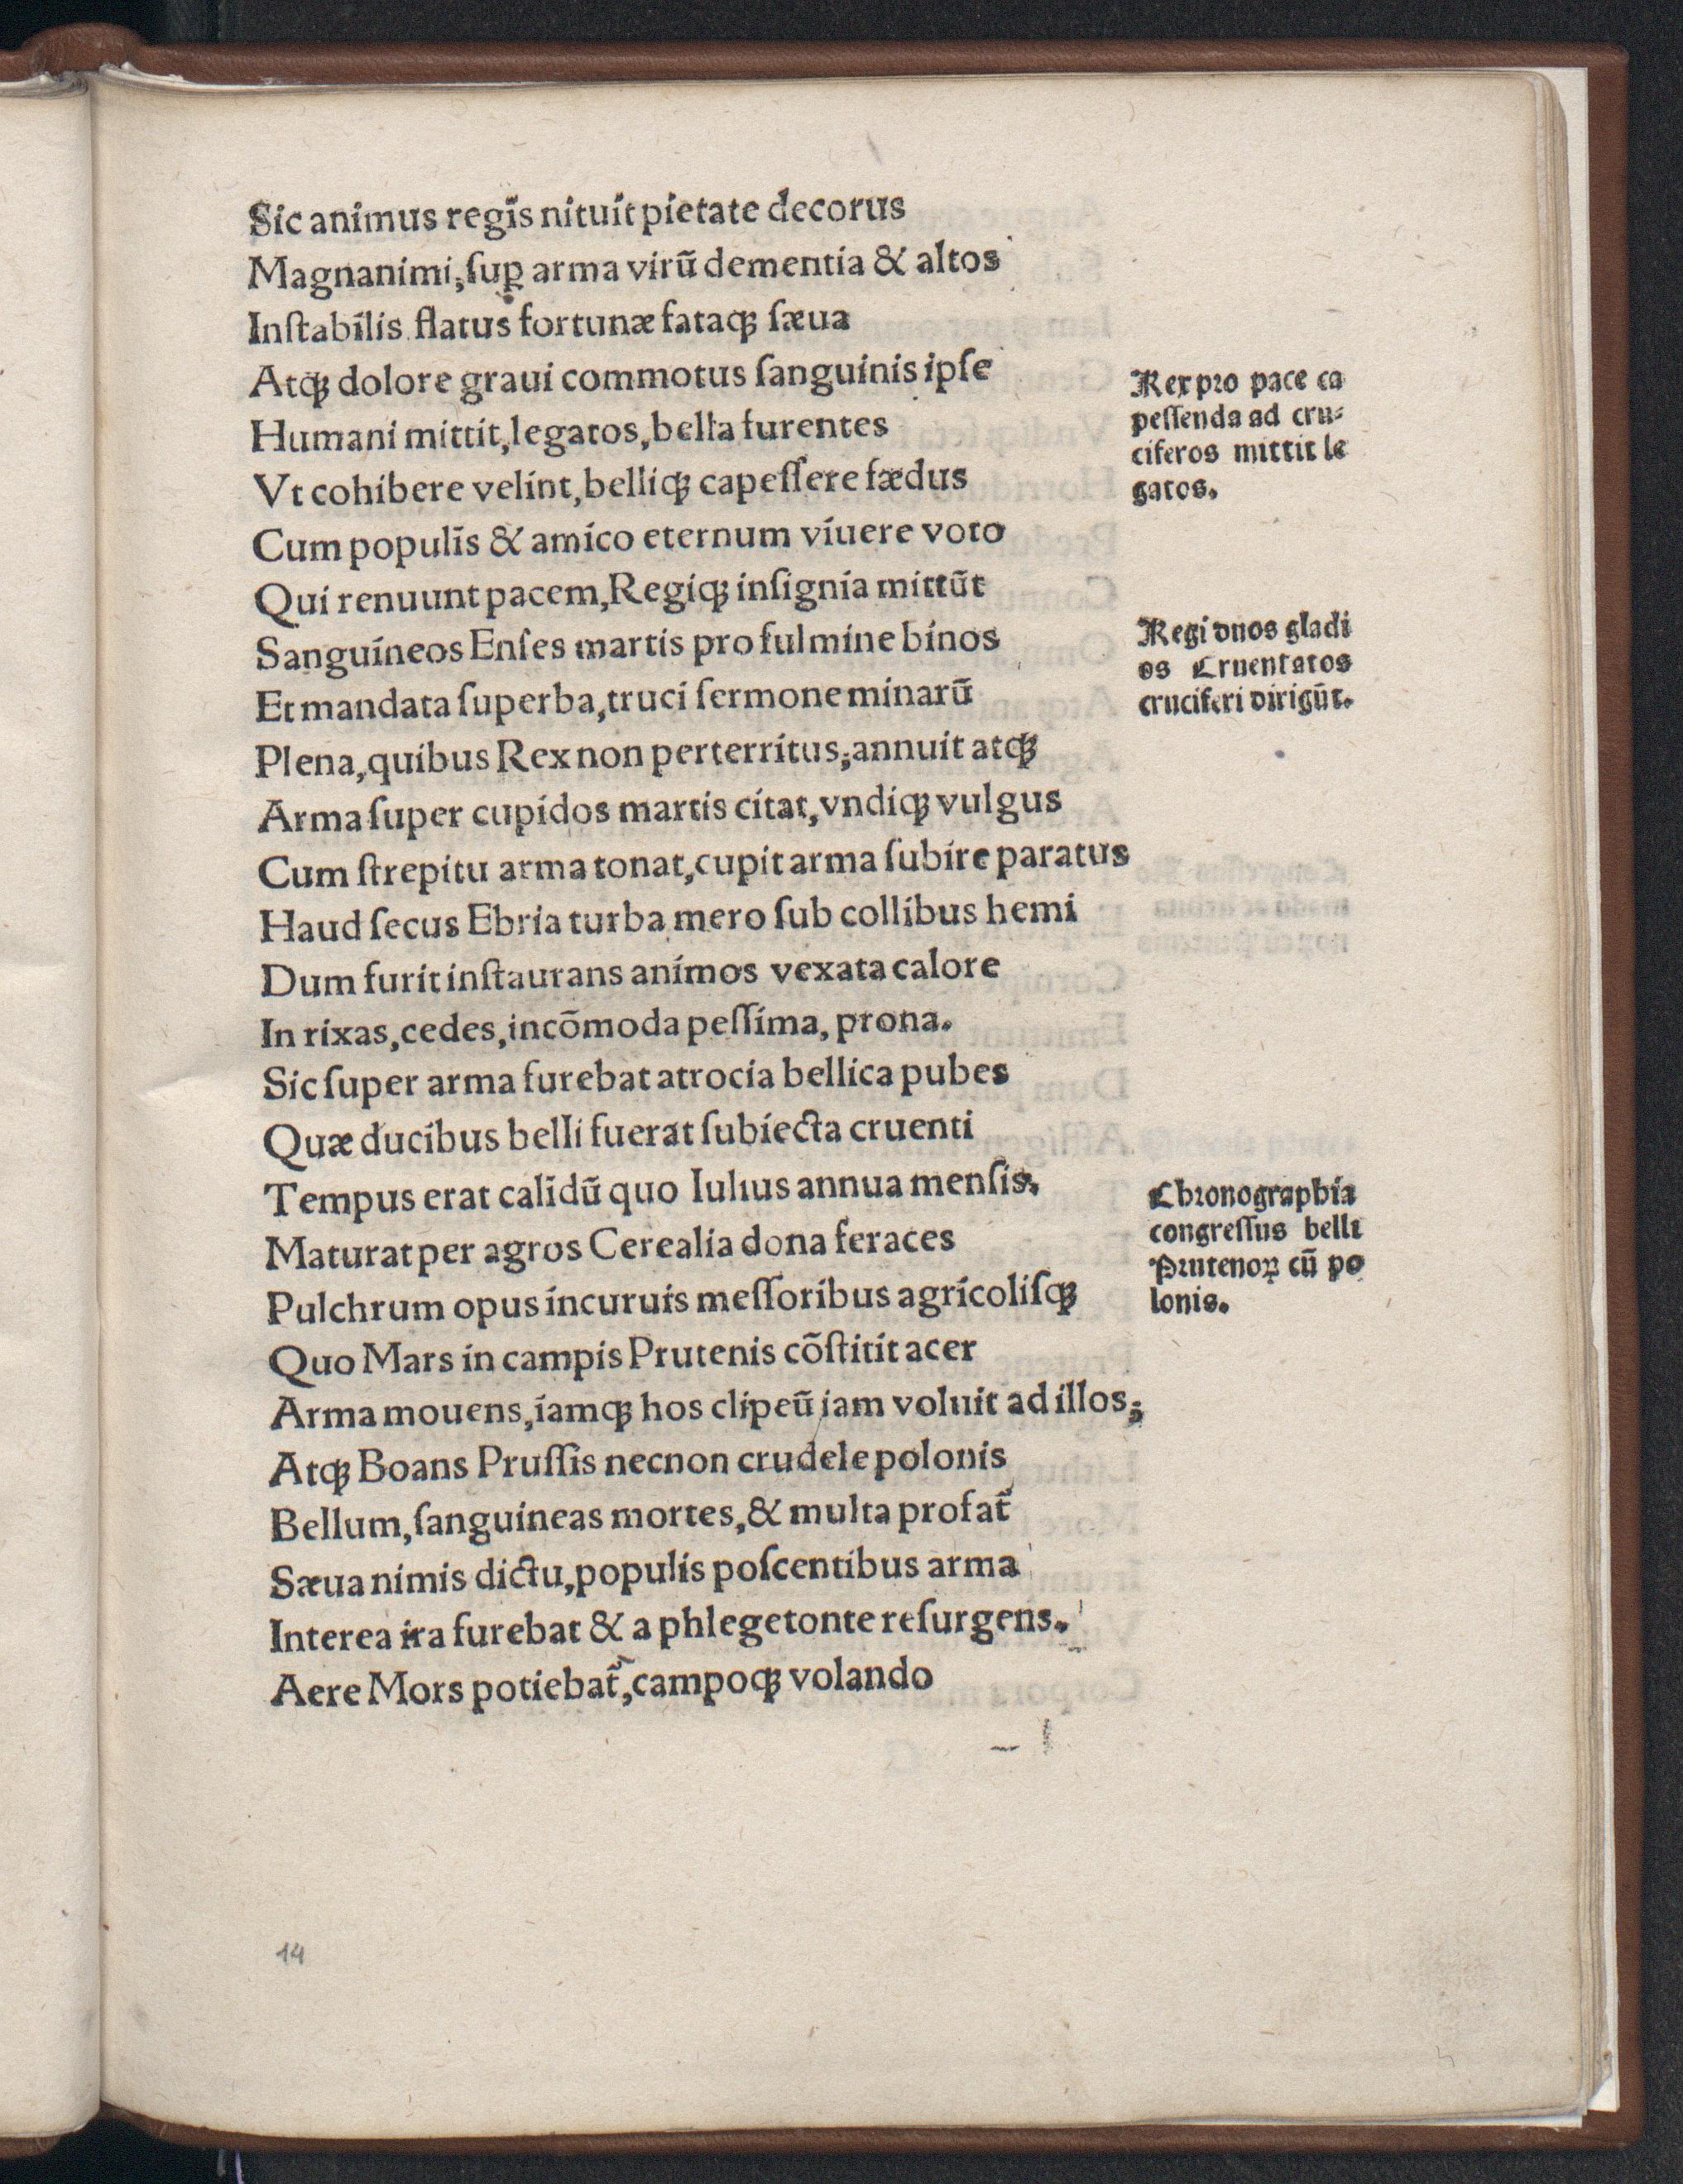 Sic animus regis nituit pietate decorus
Magnanimi, ſuꝑ arma virũ dementia & altos
Inſtabilis flatus fortunæ fataqꝫ ſæua
Atqꝫ dolore graui commotus ſanguinis ipſe
Humani mittit, legatos, bella furentes
Vt cohibere velint, belliqꝫ capeſſere fædus
Cum populis & amico eternum viuere voto
Qui renuunt pacem, Regiqꝫ inſignia mittũt
Sanguineos Enſes martis pro fulmine binos
Et mandata ſuperba, truci ſermone minarũ
Plena, quibus Rex non perterritus, annuit atqꝫ
Arma ſuper cupidos martis citat, vndiqꝫ vulgus
Cum ſtrepitu arma tonat, cupit arma ſubire paratus
Haud ſecus Ebria turba mero ſub collibus hemi
Dum furit inſtaurans animos vexata calore
In rixas, cedes, incõmoda peſſima, prona.
Sic ſuper arma furebat atrocia bellica pubes
Quæ ducibus belli fuerat ſubiecta cruenti
Tempus erat calidũ quo Iulius annua menſis,
Maturat per agros Cerealia dona feraces
Pulchrum opus incuruis meſſoribus agricoliſqꝫ
Quo Mars in campis Prutenis cõſtitit acer
Arma mouens, iamqꝫ hos clipeũ iam voluit ad illos,
Atqꝫ Boans Pruſſis necnon crudele polonis
Bellum, ſanguineas mortes, & multa profat᷑
Sæua nimis dictu, populis poſcentibus arma
Interea ira furebat & a phlegetonte reſurgens.
Aere Mors potiebat᷑, campoqꝫ volando
Rex pro pace ca
peſſenda ad cru-
ciferos mittit le
gatos.
Regi duos gladi
os Cruentatos
cruciferi dirigũt.
Chronographia
congreſſus belli
Prutenoꝝ cũ po
lonis.
14